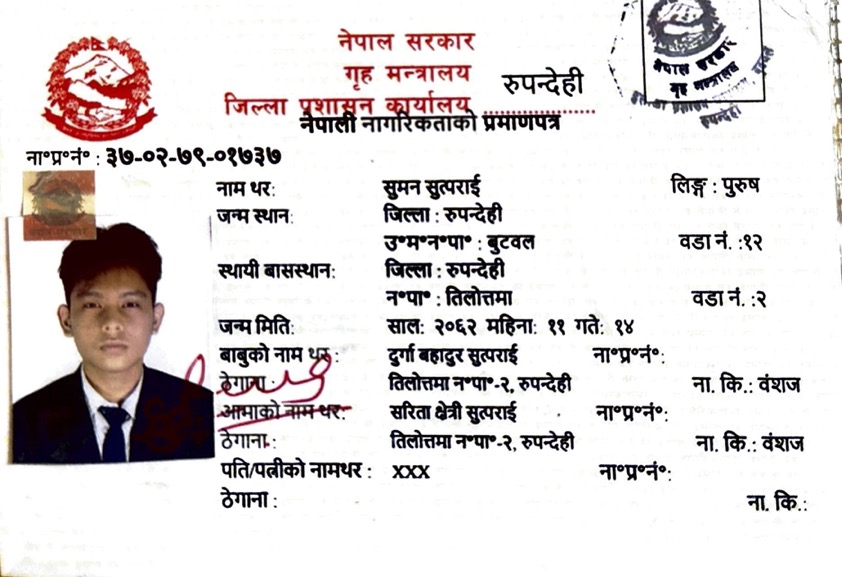 नेपाल सरकार
गृह मन्त्रालय
जिल्ला प्रशासन कार्यालय, रुपन्देही
नेपाली नागरिकताको प्रमाणपत्र
नेपाल सरकार
गृह मन्त्रालय
रुपन्देही
ना॰प्र॰नं॰ : ३७-०२-७९-०१७३७
नाम थर: सुमन सुत्पराई लिङ्ग : पुरुष
जन्म स्थान: जिल्ला : रुपन्देही
उ॰म॰न॰पा॰ : बुटवल वडा नं. :१२
स्थायी बासस्थान: जिल्ला : रुपन्देही
न॰पा॰ : तिलोत्तमा वडा नं. :२
जन्म मिति: साल: २०६२ महिना: ११ गते: १४
बाबुको नाम थर: दुर्गा बहादुर सुत्पराई ना॰प्र॰नं॰:
ठेगाना : तिलोत्तमा न॰पा॰-२, रुपन्देही ना. कि.: वंशज
आमाको नाम थर: सरिता क्षेत्री सुत्पराई ना॰प्र॰नं॰:
ठेगाना : तिलोत्तमा न॰पा॰-२, रुपन्देही ना. कि.: वंशज
पति/पत्नीको नामथर : XXX ना॰प्र॰नं॰:
ठेगाना : ना. कि.: